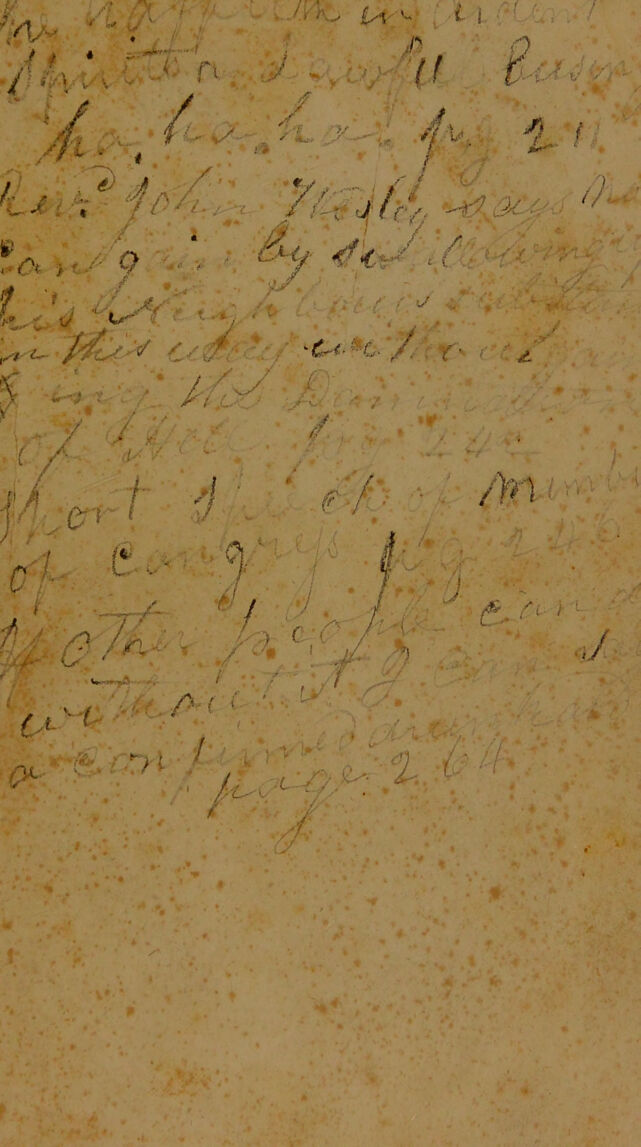 in ardent
Spirits a Lawful Busin
ha. ha. ha. pg 211
Rev.d John Wesley says no
can gain by swallowing up
his Neighbours substan
in this way without gain
ing the Damnation
of Hell pg 24
Short Speech of Membe
of Congress pg 246
If other people can d
without it I can says
a confirmed drunkard
page 264